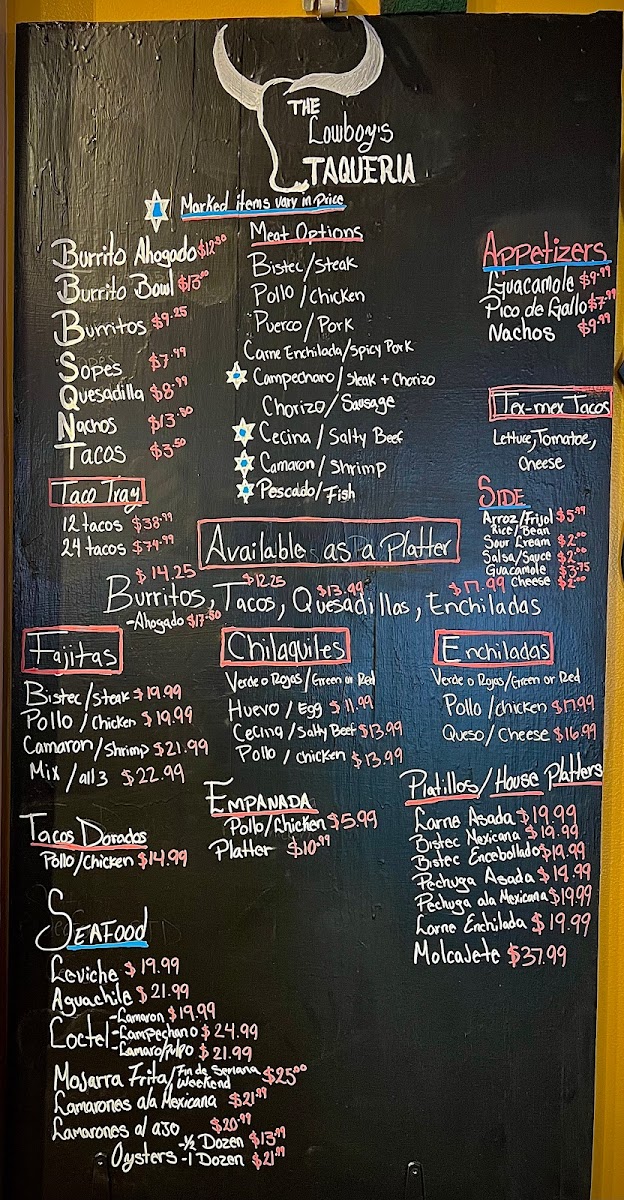 THE
Cowboy's
TAQUERIA
Marked items vary in Price
Burrito Ahogado $12.50
Burrito Bowl $13.00
Burritos $9.25
Sopes $7.99
Quesadilla $8.99
Nachos $13.50
Tacos $3.50
Taco Tray
12 tacos $38.99
24 tacos $74.99
Meat Options
Bistec/Steak
Pollo/Chicken
Puerco/Pork
Carne Enchilada/Spicy Pork
Campechano/Steak + Chorizo
Chorizo/Sausage
Cecina/Salty Beef
Camaron/Shrimp
Pescado/Fish
Appetizers
Guacamole $9.99
Pico de Gallo $7.99
Nachos $9.99
Tex-mex Tacos
Lettuce, Tomatoe,
Cheese
SIDE
Arroz/Frijol $5.99
Rice/Bean
Sour Cream $2.00
Salsa/Sauce $2.00
Guacamole $3.75
Cheese $2.00
Available as a Platter
$14.25 $12.25 $13.99 $17.99
Burritos, Tacos, Quesadillas, Enchiladas
-Ahogado $17.50
Fajitas
Bistec/Steak $19.99
Pollo/Chicken $19.99
Camaron/Shrimp $21.99
Mix/all 3 $22.99
Chilaquiles
Verde o Rojas/Green or Red
Huevo/Egg $11.99
Cecina/Salty Beef $13.99
Pollo/chicken $13.99
Enchiladas
Verde o Rojas/Green or Red
Pollo/chicken $17.99
Queso/Cheese $16.99
EMPANADA
Pollo/Chicken $5.99
Platter $10.99
Tacos Dorados
Pollo/Chicken $14.99
Platillos/House Platters
Carne Asada $19.99
Bistec Mexicana $19.99
Bistec Encebollado $19.99
Pechuga Asada $19.99
Pechuga ala Mexicana $19.99
Carne Enchilada $19.99
Molcajete $37.99
SEAFOOD
Ceviche $19.99
Aguachile $21.99
Coctel -Camaron $19.99
-Campechano $24.99
-Camaro/pulpo $21.99
Mojarra Frita/Fin de Semana $25.00
Weekend
Camarones ala Mexicana $21.99
Camarones al ajo $20.99
Oysters -1/2 Dozen $13.99
-1 Dozen $21.99